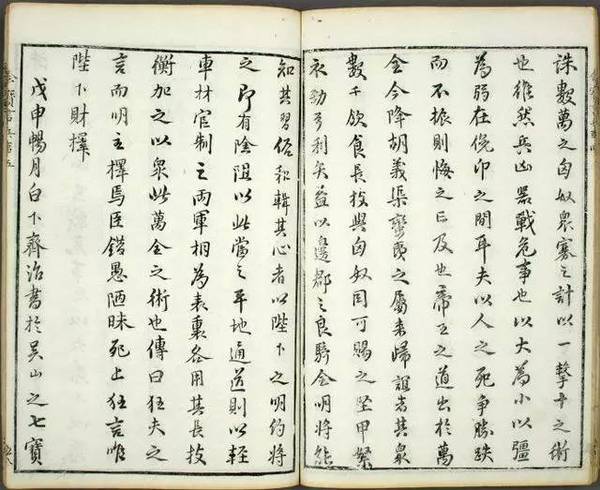 誅數萬之匈奴眾寡之計以一擊十之術
也雖然兵凶器戰危事也以大為小以彊
為弱在俛卬之間耳夫以人之死爭勝跌
而不振則悔之亡及也帝王之道出於萬
全今降胡義渠蠻夷之屬來歸誼者其眾
數千飲食長技與匈奴同可賜之堅甲絮
衣勁弓利矢益以邊郡之良騎令明將能
知其習俗和輯其心者以陛下之明約將
之即有險阻以此當之平地通道則以輕
車材官制之兩軍相為表裏各用其長技
衡加之以眾此萬全之術也傳曰狂夫之
言而明主擇焉臣錯愚陋昧死上狂言唯
陛下財擇
戊申暢月白下齊治書於吳山之七寶